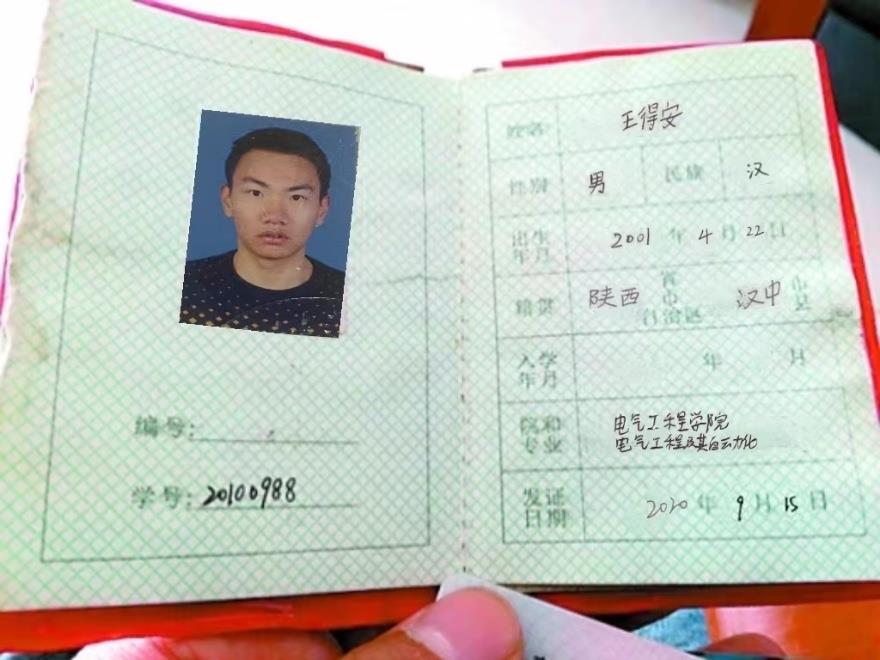 编号:
学号: 20100988
姓名 王得安
性别 男 民族 汉
出生年月 2001 年 4 月 22 日
籍贯 陕西 省市自治区 汉中 市县
入学年月 年 月
院和专业 电气工程学院
电气工程及其自动化
发证日期 2020 年 9 月 15 日